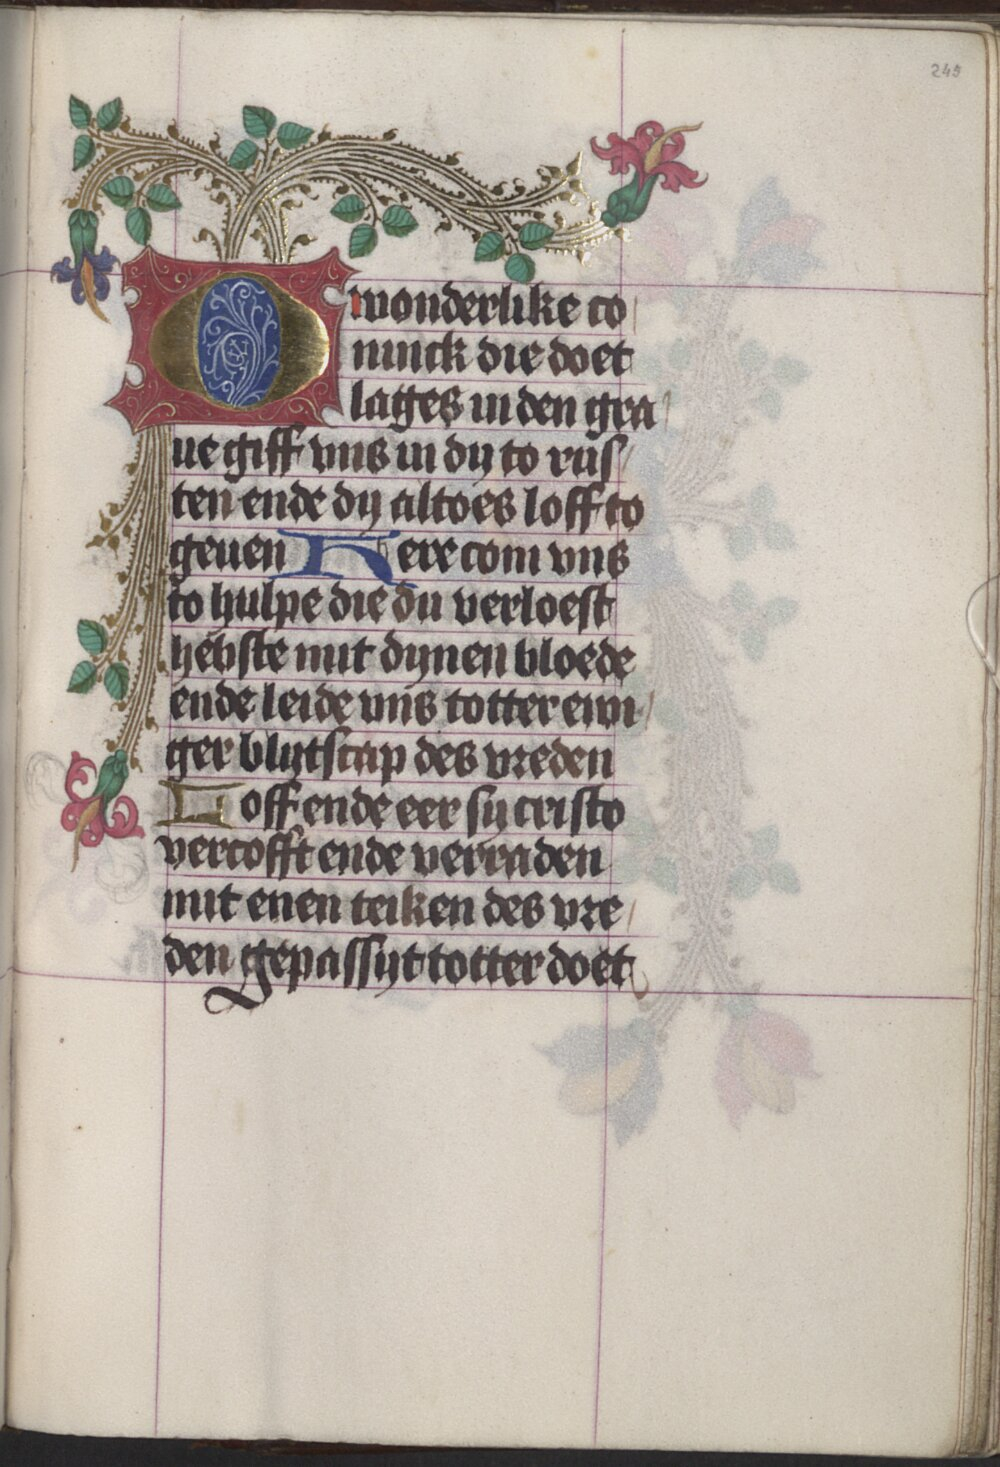 245
O wonderlike co
ninck die doet
lages in den gra
ue giff vns in dy to rus
ten ende dy altoes loff to
geuen Here com vns
to hulpe die du verloest
hebste mit dynen bloede
ende leide vns totter ewi
ger blytscap des vreden
Loff ende eer sy cristo
vercofft ende verraden
mit enen teiken des vre
den gepassyt totter doet